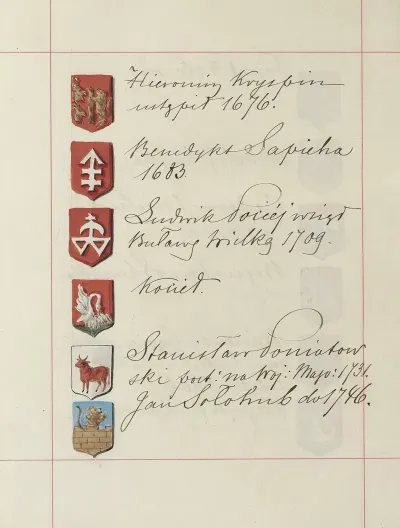 Hieronim Kryspin
ustąpił 1676.
Benedykt Sapieha
1683
Ludwik Pociéj wziął
Buławę Wielką 1709.
Kocieł.
Stanisław Poniatow
ski post: na Woj: Mazo: 1731.
Jan Sołohub do 1746.